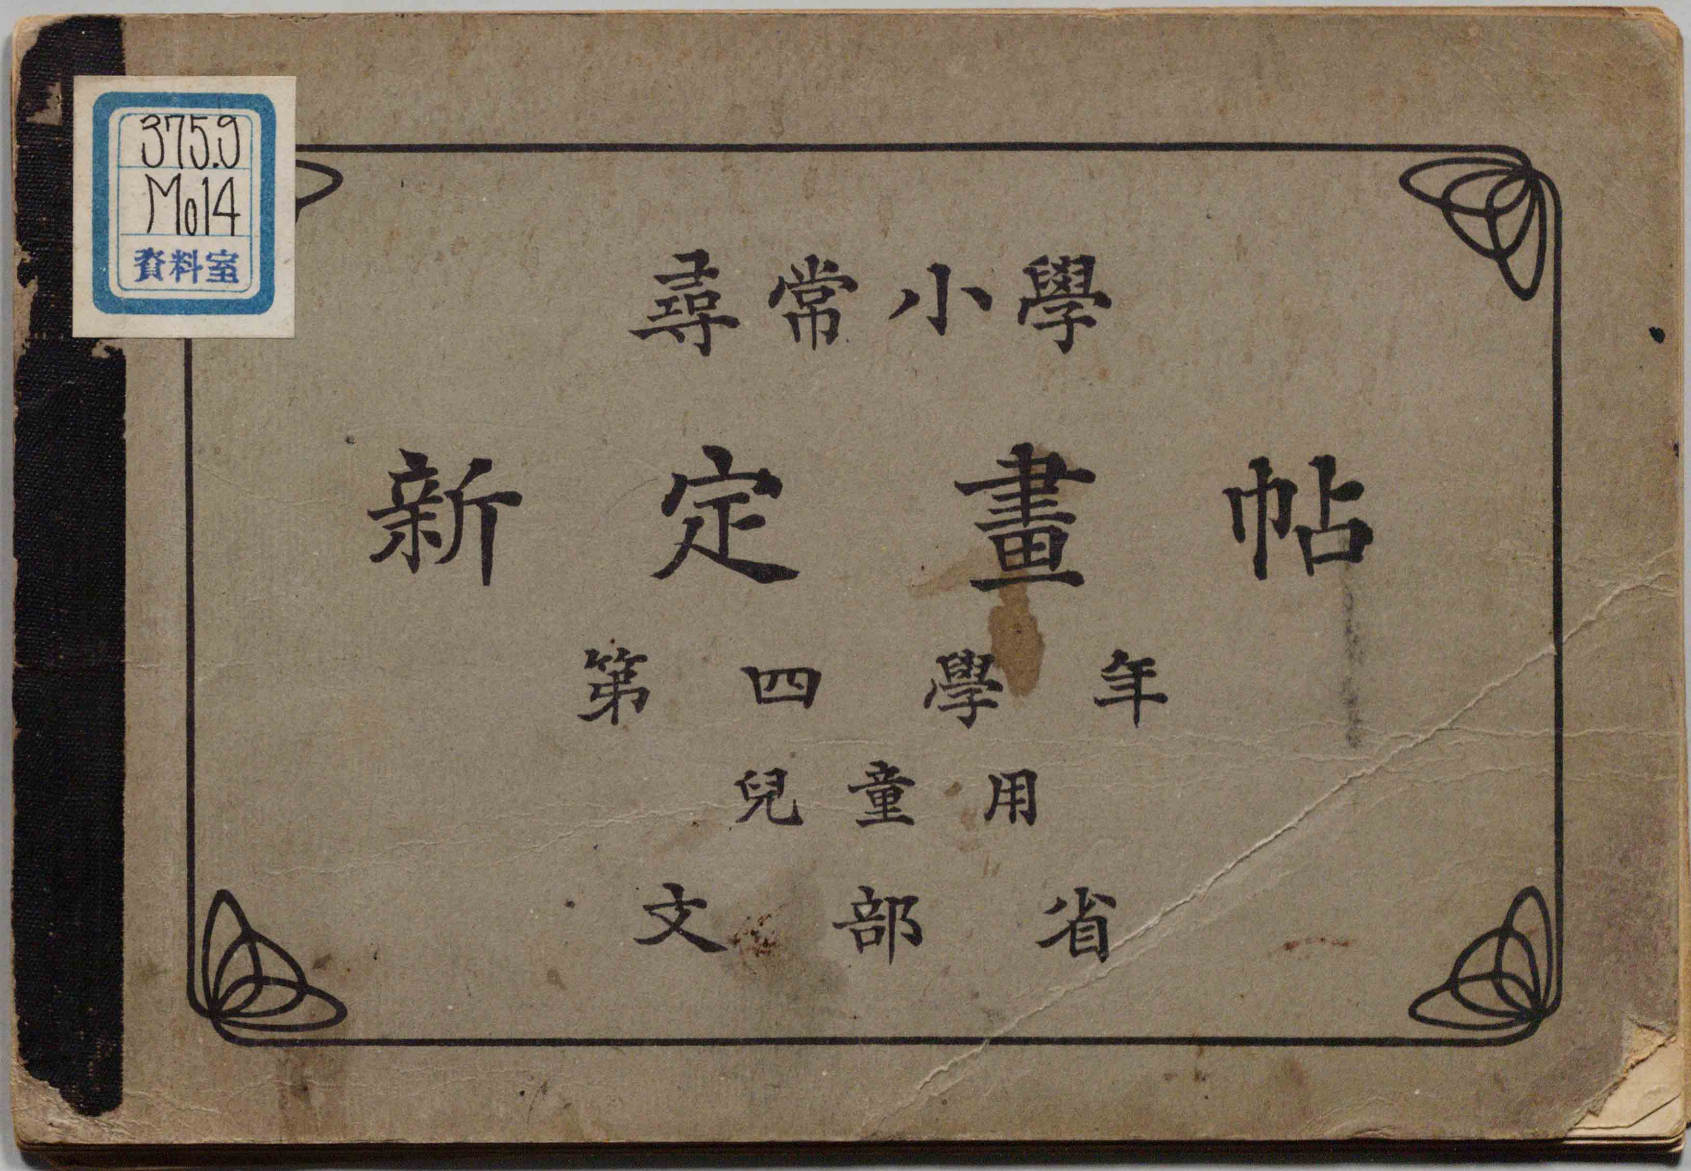 375.9
Mo14
資料室
尋常小學
新定畫帖
第四學年
兒童用
文部省